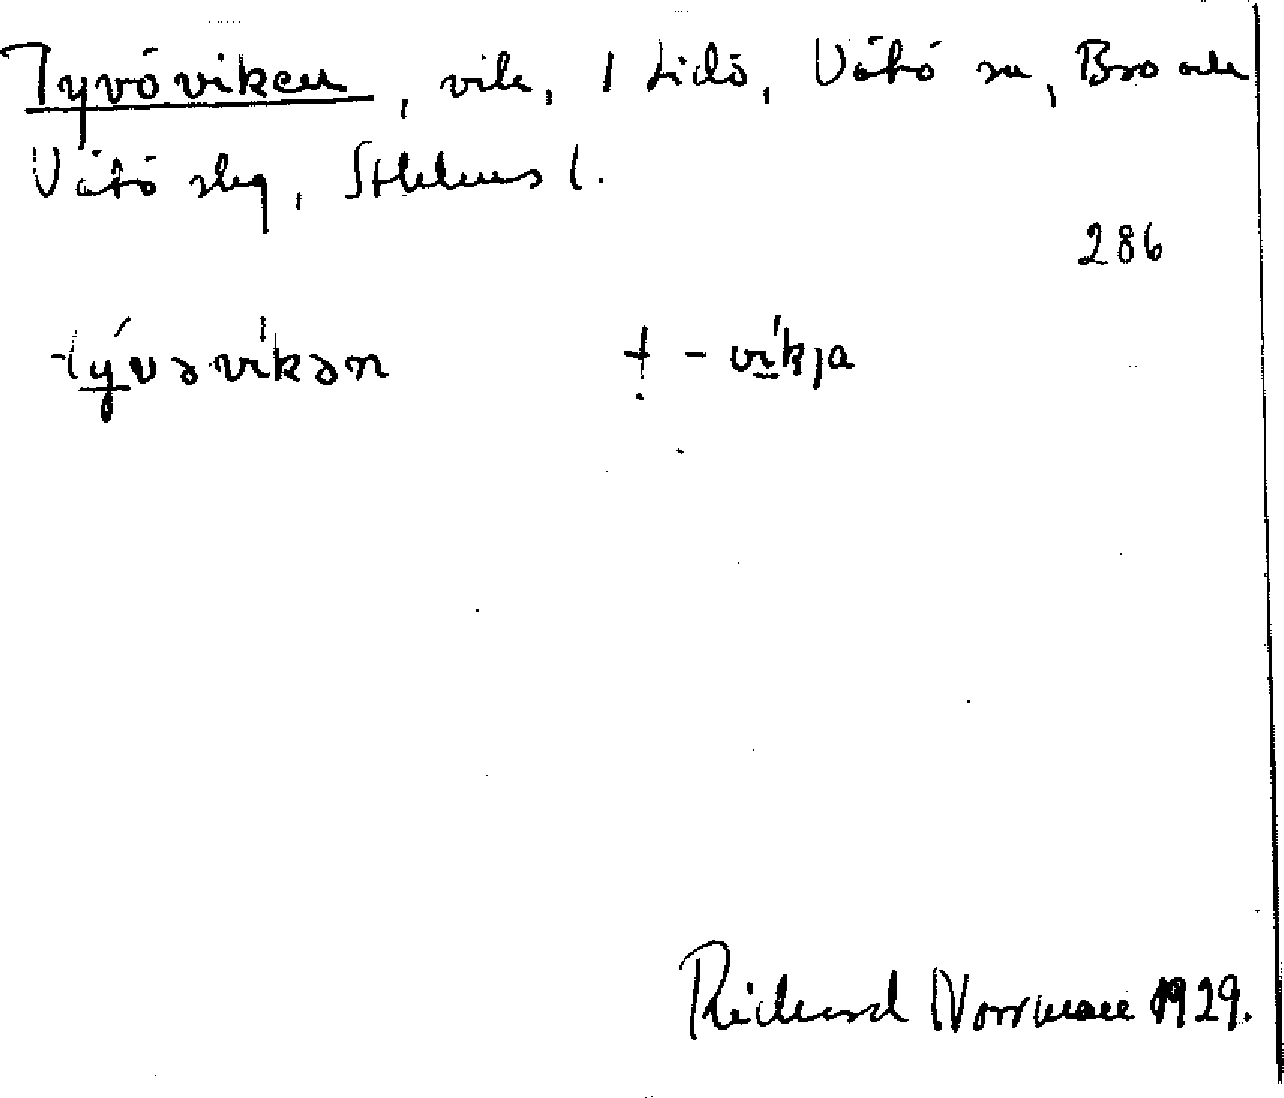 Tyvöviken, vik, 1 Lidö, Vätö sn, Bro och
Vätö skg, Sthlms l.
286
tývəvíkən † - víkja
Richard Norrman 1929.